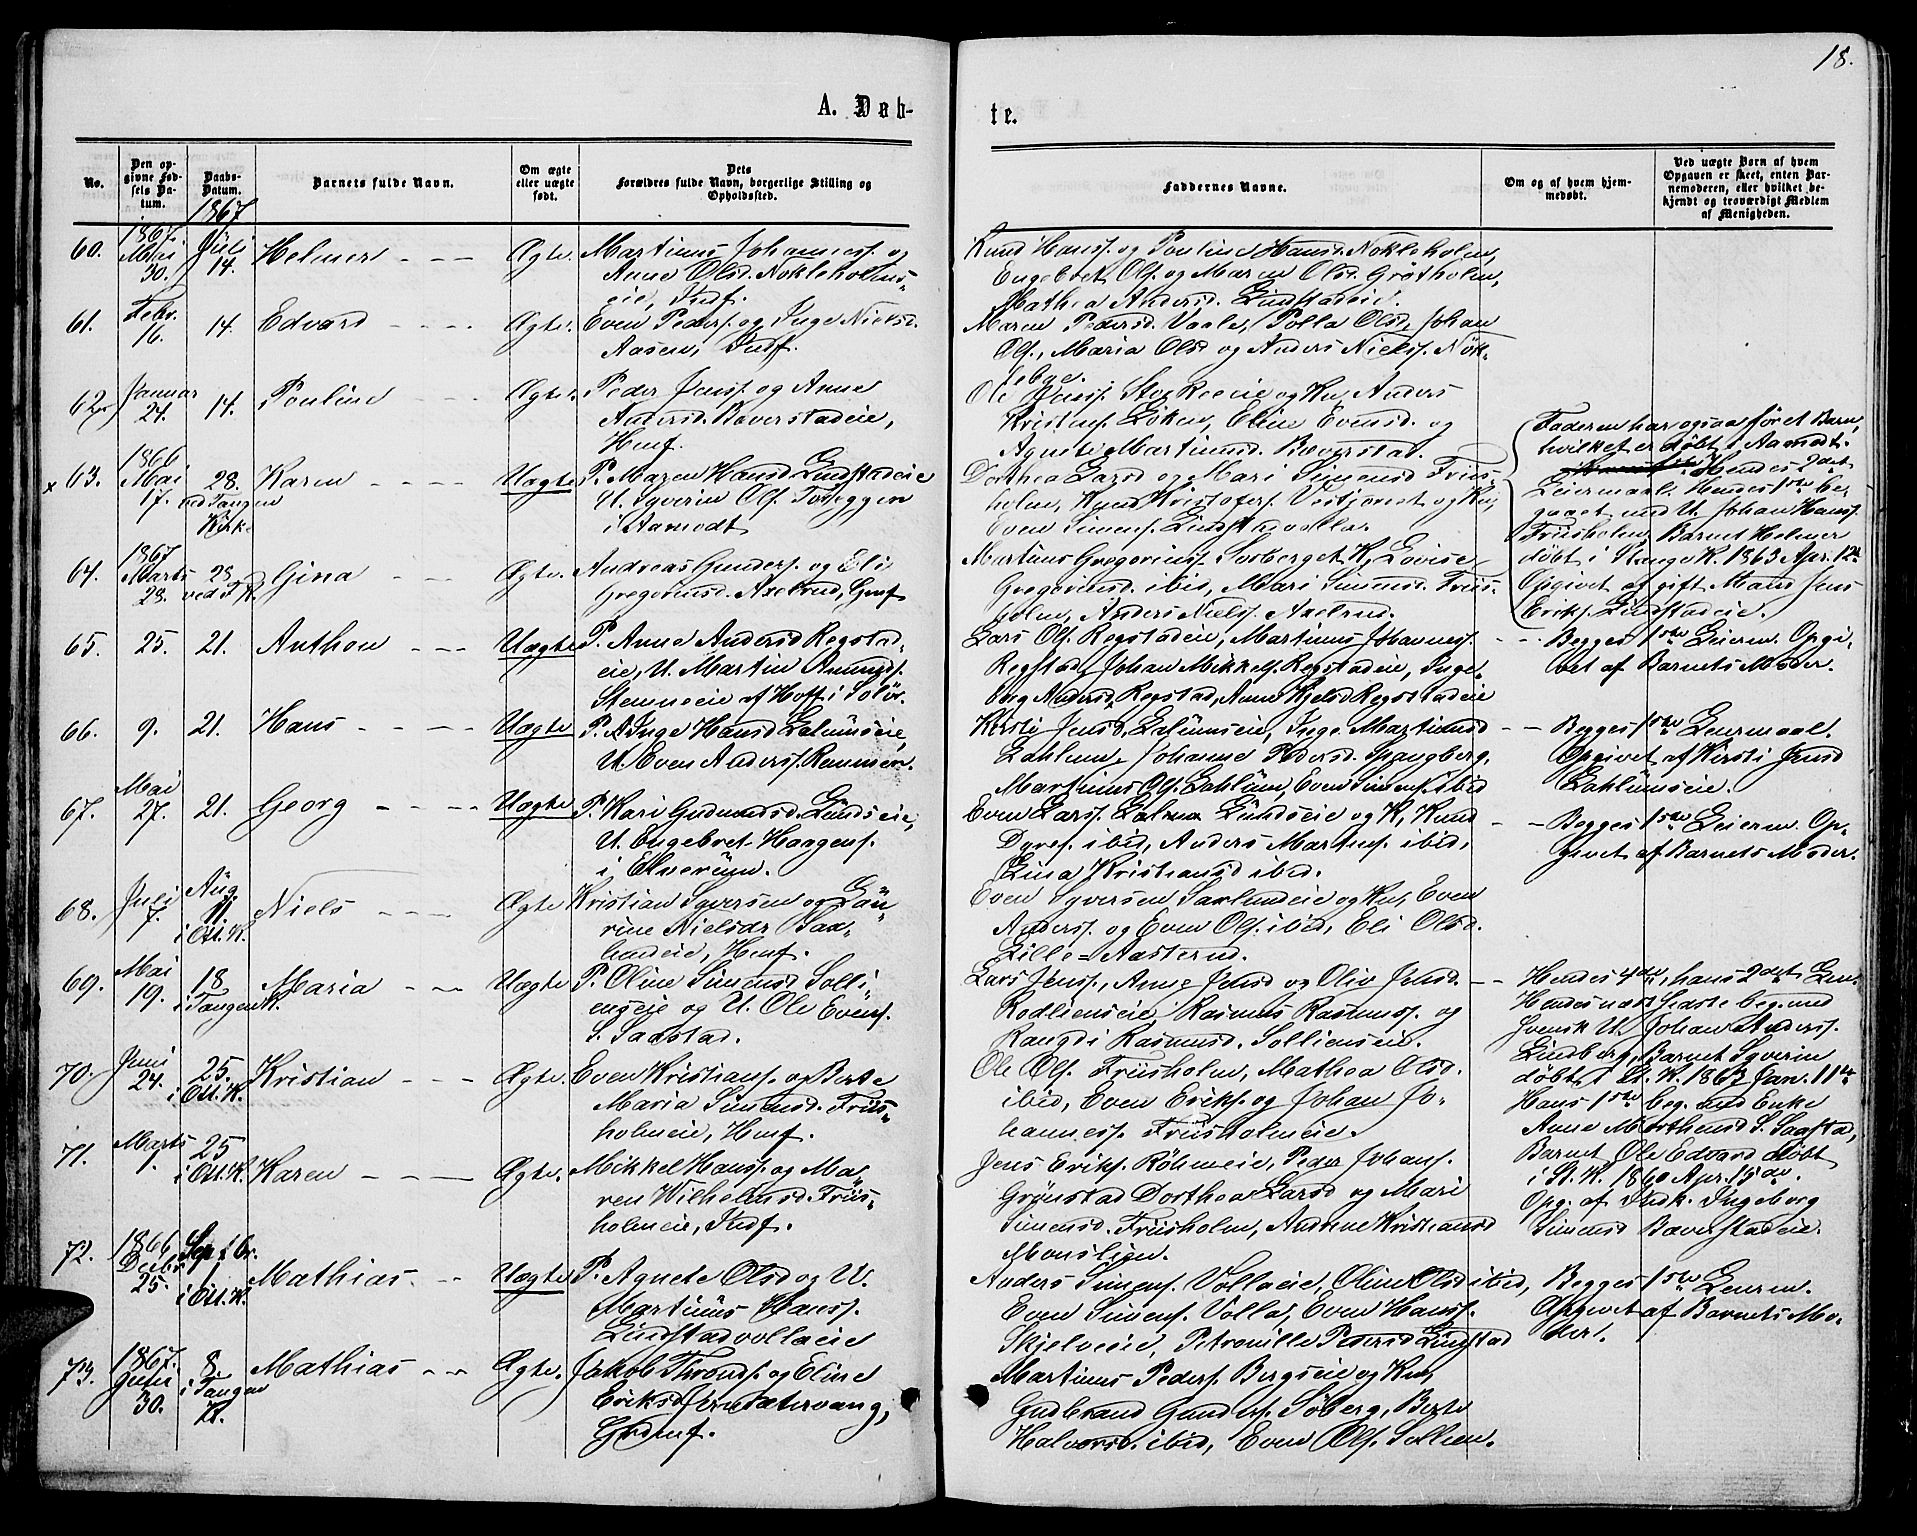 18.
A. Døb-
te.
No.
Den op-
givne Fød-
sels Da-
tum.
Daabs-
Datum.
Barnets fulde Navn.
Om ægte
eller uægte
født.
Dets
Forældres fulde Navn, borgerlige Stilling og
Opholdssted.
Faddernes Navne.
Om og af hvem hjem-
medøbt.
Ved uægte Børn af hvem
Opgaven er skeet, enten Bar-
nemoderen, eller hvilket be-
kjendt og troværdigt Medlem
af Menigheden.
1867
60.
1867.
Mai
30.
Juli
14.
Helmer
Ægte.
Martinus Johanness. og
Anne Olsd. Nokleholms-
eie, Indf.
Knud Hanss. og Pouline Hansd. Nokleholm,
Engebret Ols. og Maren Olsd. Grøtholm,
Mathea Andersd. Lindstadeie.
61.
Febr.
16.
14.
Edvard
Ægte.
Even Peders. og Inge Nielsd.
Aasen, Indf.
Maren Pedersd. Vaale, Polla Olsd, Johan
Ols., Maria Olsd og Anders Nielss. Nök-
lebye.
62.
Januar
24.
14.
Pouline
Ægte.
Peder Jenss. og Anne
Andersd. Bæverstadeie,
Henf.
Ole Jenss. Sterkeeie og Kn, Anders
Kristens. Löken, Eline Evensd. og
Agnete Martinusd. Bæverstad.
x 63.
1866
Mai
17.
28.
ved Tangen
Kirke
Karen
Uægte
P. Maren Hansd Lindstadeie
U. Syverin Ols. Toseggen
i Aamodt
Dorthea Larsd og Mari Simensd Friis-
holm, Knud Kristofers. Vestjoret og Kn,
Even Simens. Lindstadvolla.
Faderen har ogsaa föret Barn,
hvilket er døbt i Aamodt.
Hendes 2det
Leiermaal. Hendes 1ste be-
gaaet med U. Johan Hanss.
Friisholm, Barnet Helmer
døbt i Stange K. 1863 Apr. 12te
Opgivet af gift Mand Jens
Eriks. Lindstadeie.
64.
1867
Marts
28.
28.
ved T. K.
Gina
Ægte.
Andreas Gunders. og Eli
Gregoriusd. Axelrud, Gmf
Martinus Gregoriuss. Sorberget K, Lovise
Gregoriusd. ibid, Mari Simensd. Friis-
holm, Anders Nielss. Axelrud.
65.
25.
21.
Anthon
Uægte
P. Anne Andersd Rogstad-
eie, U. Martin Amunds.
Stenneeie af Hoff i Solör.
Lars Ols. Rogstadeie, Martinus Johanness.
Rogstad, Johan Mikkels. Rogstadeie, Inge-
borg Andersd, Rogstad, Anne Kjelsd Rogstadeie
Begges 1ste Leierm. Opgi-
vet af Barnets Moder.
66.
9.
21.
Hans
Uægte
P. Inge Hansd Lalumseie,
U. Even Anderss. Rammen.
Kirsti Jensd, Lalumseie, Inge Martinusd
Lahlum, Johanne Pedersd. Spangberg,
Martinus Ols. Lahlum, Even Simens. ibid
Begges 1ste Leiermaal.
Opgivet af Kirsti Jensd
Lahlumseie.
67.
Mai
27.
21.
Georg
Uægte
P. Kari Gudmundsd. Lundseie,
U. Engebret Haagens.
i Elverum.
Even Larss. Lalum Lundseie og K, Knud
Dyres. ibid, Anders Martins. ibid,
Lina Kristiansd ibid.
Begges 1ste Leierm. Op-
givet af Barnets Moder.
68.
Juli
7.
Aug.
11.
i Ott. K.
Niels
Ægte
Kristian Syversen og Lau-
rine Nielsdr Sax-
lundeie, Henf.
Even Syversen Saxlundeie og Kn, Even
Anderss. og Even Ols. ibid, Eli Olsd.
Lille-Aasterud.
69.
Mai
19.
18
i Tangen K.
Maria
Uægte
P. Oline Simensd Solli-
enseie og U. Ole Evens.
S. Saxstad.
Lars Jenss., Anne Jensd og Oliv Jensd.
Rodlienseie, Rasmus Rasmuss. og
Rangdi Rasmusd. Sollienseie.
Hendes 4de, hans 2det Lei.
Hendes næst sidste beg. med
Svensk U. Johan Anderss.
Lindberg, Barnet Syverin
døbt i St. K. 1863 Jan. 11te
Hans 1ste beg. med Enke
Anne Morthensd S. Saxstad,
Barnet Ole Edvard døbt
i St. K. 1860 Apr. 15de.
Opg. af Indk. Ingeborg
Simensd Bæverstadeie.
70.
Juni
24.
25.
i Ott. K.
Kristian
Ægte.
Even Kristians. og Berte
Maria Simensd. Friis-
holmeie, Henf.
Ole Ols. Friisholm, Mathea Olsd.
ibid, Even Eriks. og Johan Jo-
hanness. Friisholmeie.
71.
Marts
1.
25
i Ott. K.
Karen
Ægte.
Mikkel Hanss. og Ma-
ren Wilhelmsd. Friis-
holmeie, Indf.
Jens Eriks. Röhmeie, Peder Johans.
Grönstad Dorthea Larsd og Mari
Simensd. Friisholm, Andrine Kristiansd
Monslien.
72.
1866
Decbr
25.
Septbr.
1
i Ott. K.
Mathias
Uægte
P. Agnete Olsd og U.
Martinus Hanss.
Lindstadvollaeie
Anders Simens. Vollaeie, Oline Olsd ibid,
Even Simens. Volla, Even Hanss.
Skjelveeie, Petronille Pedersd Lingstad
Begges 1ste Leierm.
Opgivet af Barnets Mo-
der.
73.
1867.
Juni
30.
8.
i Tangen
K.
Mathias
Ægte.
Jakob Thronds. og Eline
Eriksd Jernsætervang,
Gmf.
Martinus Peders. Bergseie og Kn,
Gudbrand Gunders. Söberg, Berte
Halvorsd. ibid, Even Ols. Sollien.